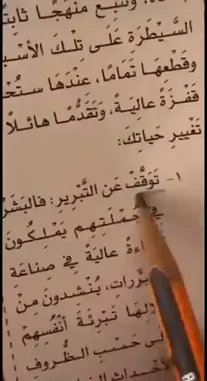 وتتبع منهجًا ثابتً
السَّيْطَرَةَ عَلَى تِلْكَ الأَسْ
وَقَطْعِهَا تَمَامًا، عِنْدَهَا سَتُحَ
قَفْزَةً عَالِيَةً، وَتَقَدُّمًا هَائِلًا
تَغْيِيرِ حَيَاتِكَ:
١- تَوَقَّفْ عَنِ التَّبْرِيرِ: فَالبَشَرُ
فِي جُمْلَتِهِمْ يَمْلِكُونَ
عَالِيَةً فِي صِنَاعَةِ
يَنْشُدُونَ مِنْ
تَبْرِئَةَ أَنْفُسِهِمْ
حَسَبِ الظُّرُوفِ